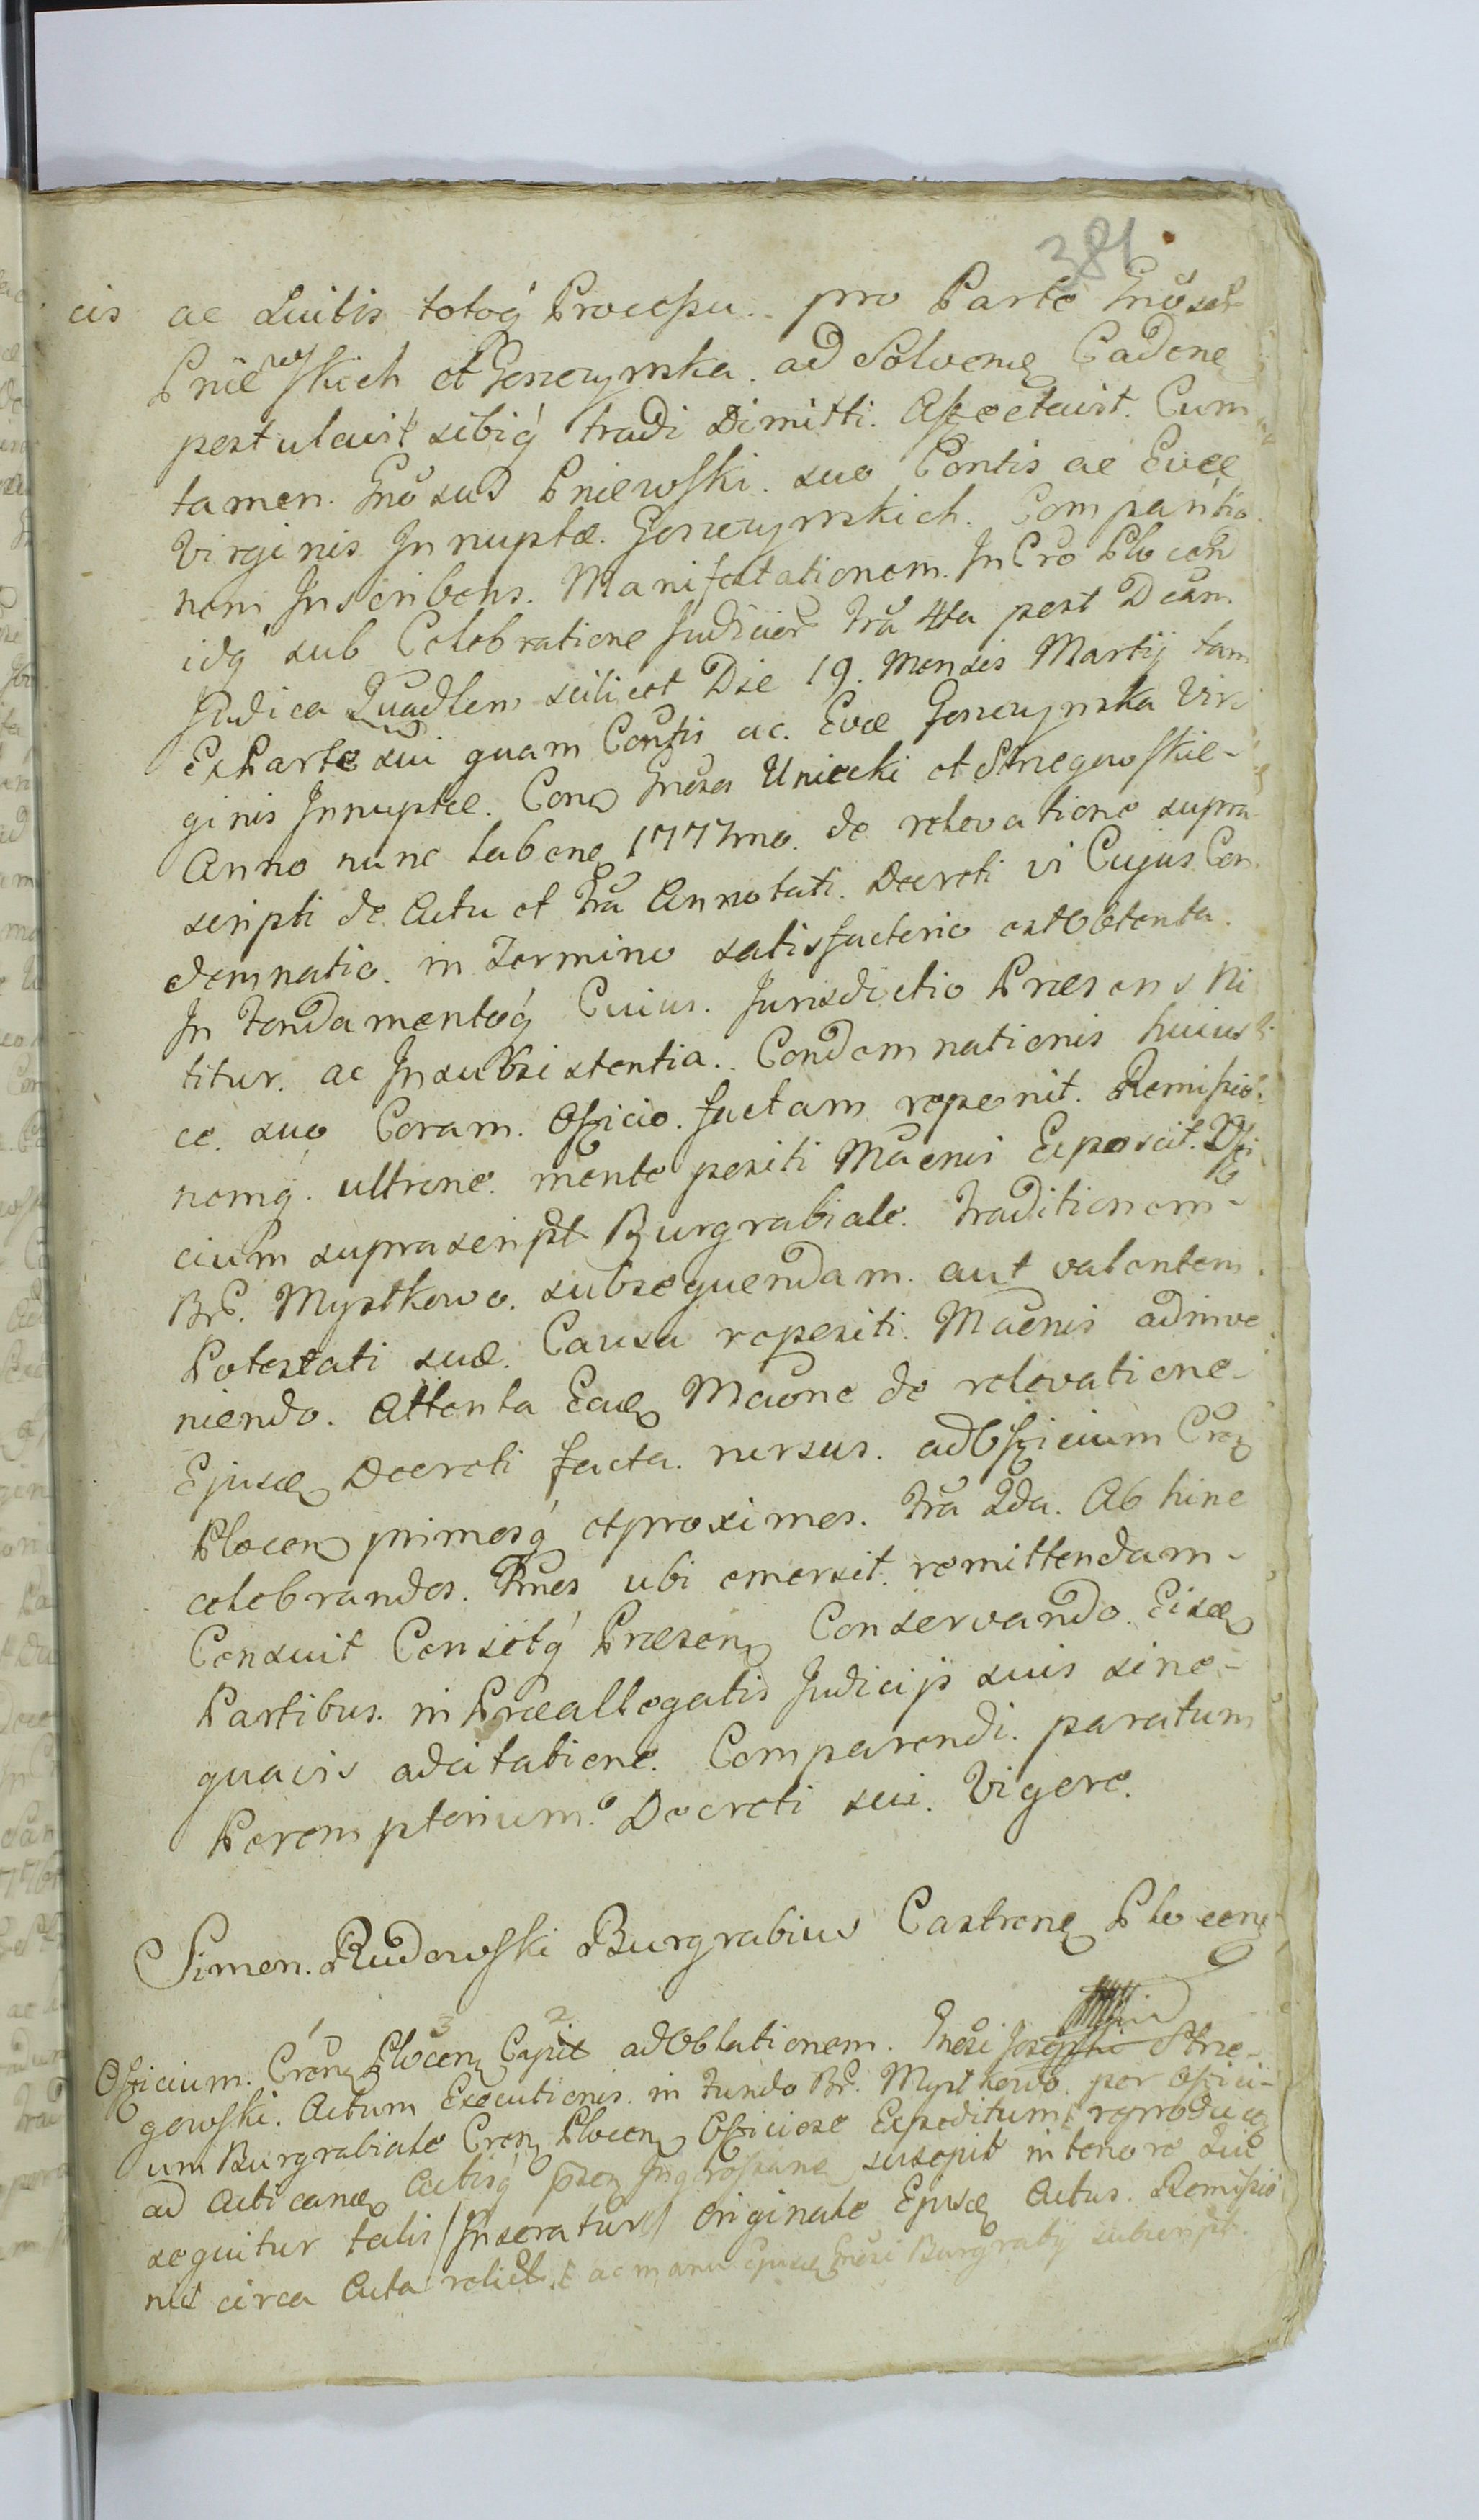 381
cis ac Luitis totoq́ Processu. pro Parte Gnoser
Pniewskich et Goszczynska. ad Solvend Cadend
postulavit sibiq́ tradi Dimitti. Affectavit. Cum
tamen. Gnosus Pniewski. suo Contis ac Evæ
Virginis Innuptæ. Goszczynskich. Comparitio
nem Inscribens. Manifestationem. In Cro Plocen
idq́ sub Celebratione Judicior Fra 4ta post Dcam
Judica Quadlem scilicet Die 19. Mensis Martij tam
Ex Parte sui quam Contis ac. Evæ Goszczynska Vir
ginis Innuptæ. Cona Gnosos Uniecki et Strzegowskie-
Anno nunc laben 1777mo. de relevatione supra
scripti de Actu et Fra Annotati. Decreti vi Cujus Con
demnatio. in Termino satisfactorio est Obtenta.
In Fondamentoq́ Cuius. Jurisdictio Præsens Ni
titur. ac Insubsistentia. Condemnationis huius
ce. suo Coram. Officio. factam reponit. Remissio
nemq́. ultrone. mente positi Mãenis Exposcit. Offi
cium suprascript Burgrabiale. Traditionem-
Br. Mystkowo. subsequendam. aut valentem.
Potestati suæ. Causa repositi. Mãenis adinve
niendo. Attenta Ead Mãone de relevatione-
Ejusd Decreti facta. rursus. ad Officium Cro
Plocen primosq́ et proximos. Fra 2da. Ab hinc
celebrandos. Tnos ubi emersit. remittendam-
Censuit Censetq́ Præsen Conservando. Eisd
Partibus. in Præallegatis Judicijs suis sine-
quavis adcitatione. Comparendi. paratum
Peremptorium. Decreti sui. Vigore.
Simon. Rudowski Burgrabius Castren Plocen
Officium. Cren Plocen Capit ad Oblationem. Gnosi Josephi Strze-
1 3 2
gowski. Actum Executionis. in Fundo Br. Mystkowo. per Offici-
um Burgrabiale Cren Plocen Officiose Expeditum reproduc
ad Acticand Actisq́ psen Ingrossand suscepit in tenore Qui
sequitur talis / Inseratur / Originale Ejusd Actus. Remissio
nis circa Acta relict. ac manu Ejusd Gnosi Burgrabij subscript.